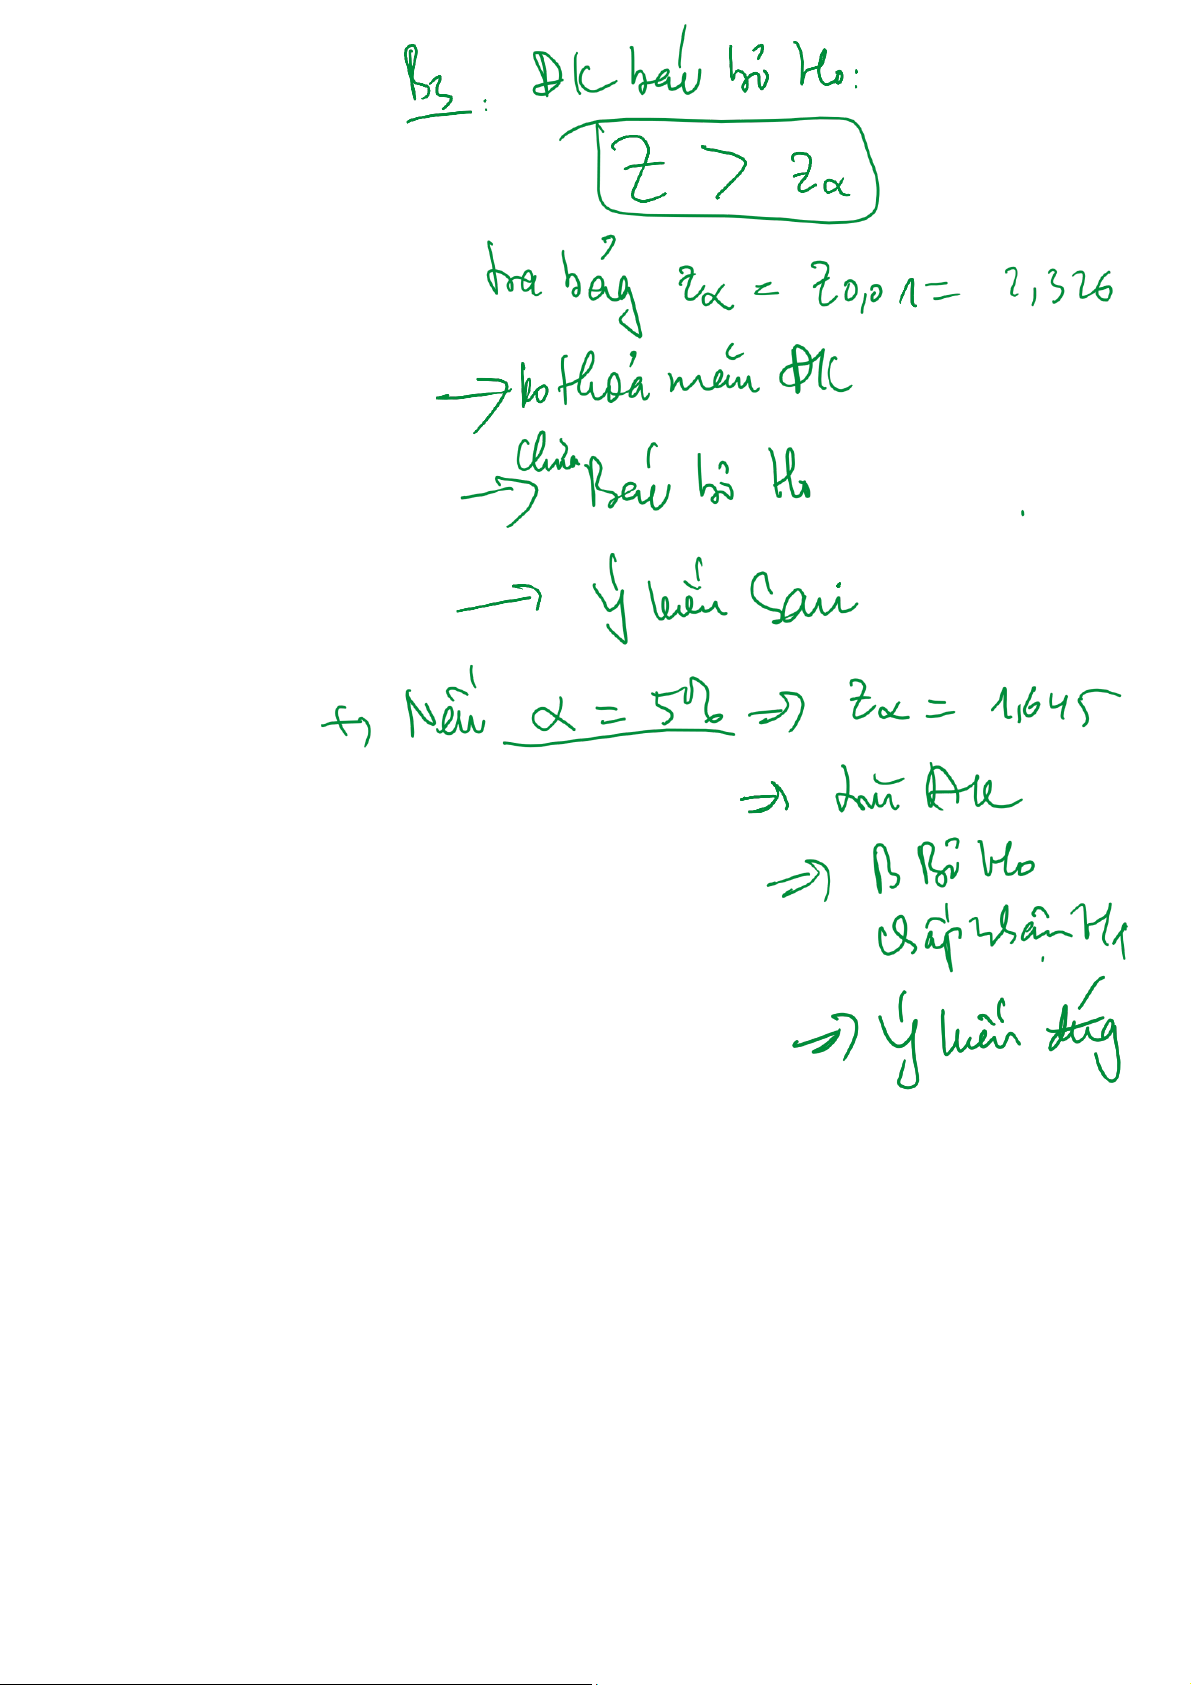 B3: ĐK bác bỏ H0:
Z > zα
tra bảg zα = z0,01 = 2,326
→ ko thoả mãn ĐK
→ chưa Bác bỏ H0
→ Ý kiến Sai
+, Nếu α = 5% → zα = 1,645
→ t/m ĐK
→ B Bỏ H0
chấp nhận H1
→ Ý kiến đúg